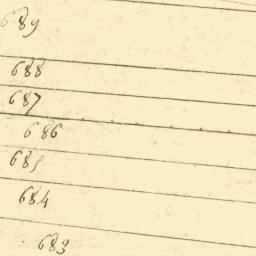 689
688
687
686
685
684
683